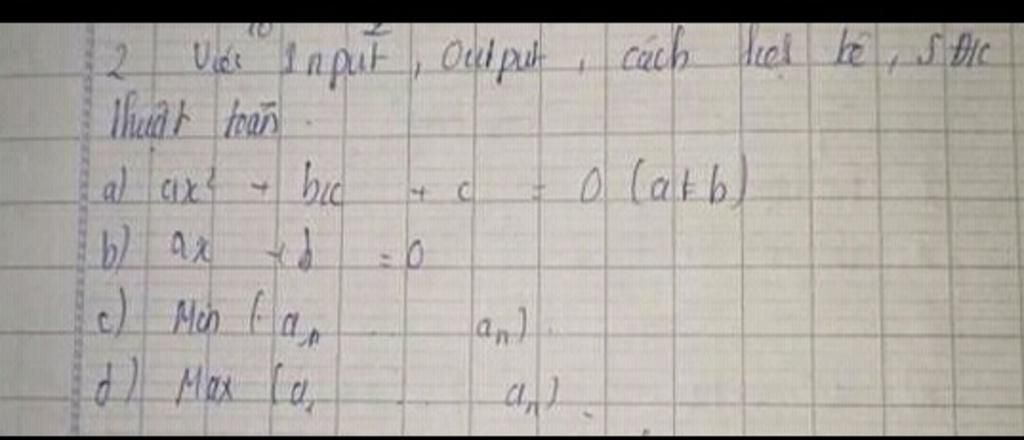 2 Viết Input, Output, cách liệt kê, S
thuật toán.
a) ax² + bx + c = 0 (a ≠ b)
b) ax + b = 0
c) Min (a, an).
d) Max (a, an).